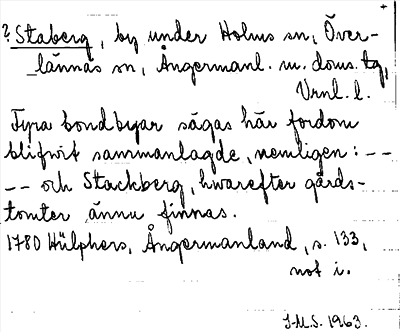 ? Staberg, by under Holms sn, Över-
lännäs sn, Ångermanl. m. doms. tg,
Vrnl. l.
Fyra bondbyar sägas här fordom
blifvit sammanlagde, nemligen: --
-- och Stackberg, hwarefter gårds-
tomter ännu finnas.
1780 Hülphers, Ångermanland, s. 133,
not i.
J.M.S. 1963.